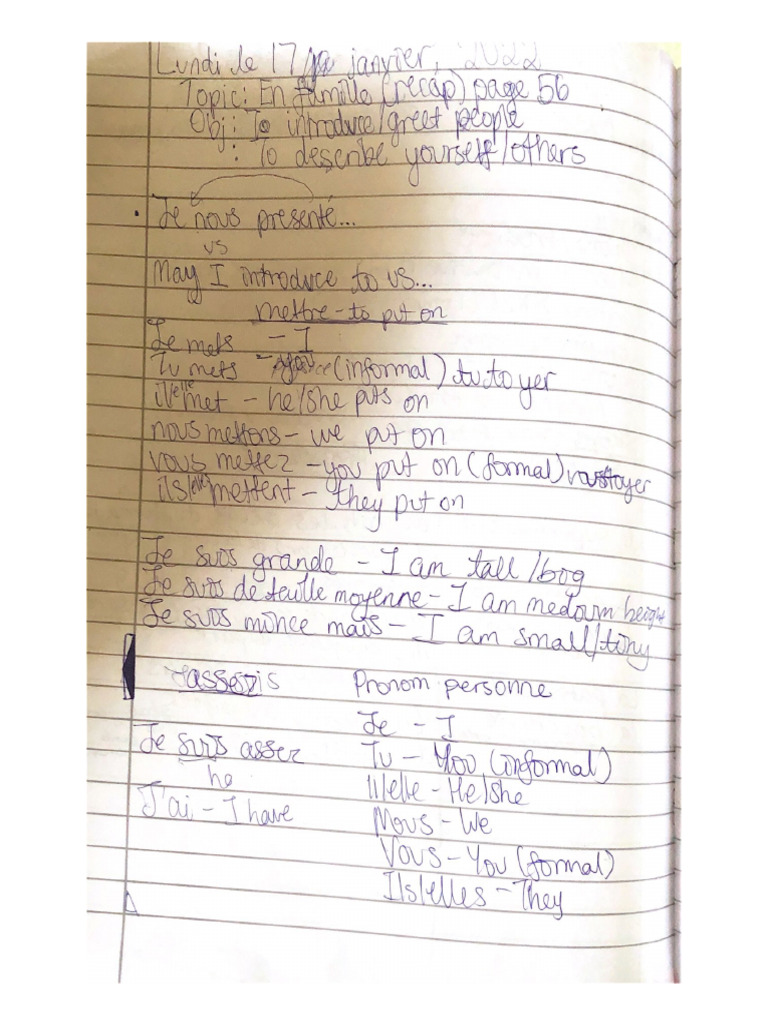 Lundi le 17 janvier, 2022
Topic: En famille (recap) page 56
Obj: To introduce/greet people
: To describe yourself/others
• Je nous presenté...
vs
May I introduce to us...
mettre - to put on
Je mets - I
Tu mets - you (informal) tu toyer
il/elle met - he/she puts on
nous mettons - we put on
vous mettez - you put on (formal)
ils/elles mettent - they put on
Je suis grande - I am tall/big
Je suis de teuille moyenne - I am medium height
Je suis mince mais - I am small/tiny
Pronom personne
Je - I
Je suis assez
Tu - You (informal)
he
Il/elle - He/she
J'ai - I have
Nous - We
Vous - You (formal)
Ils/elles - They